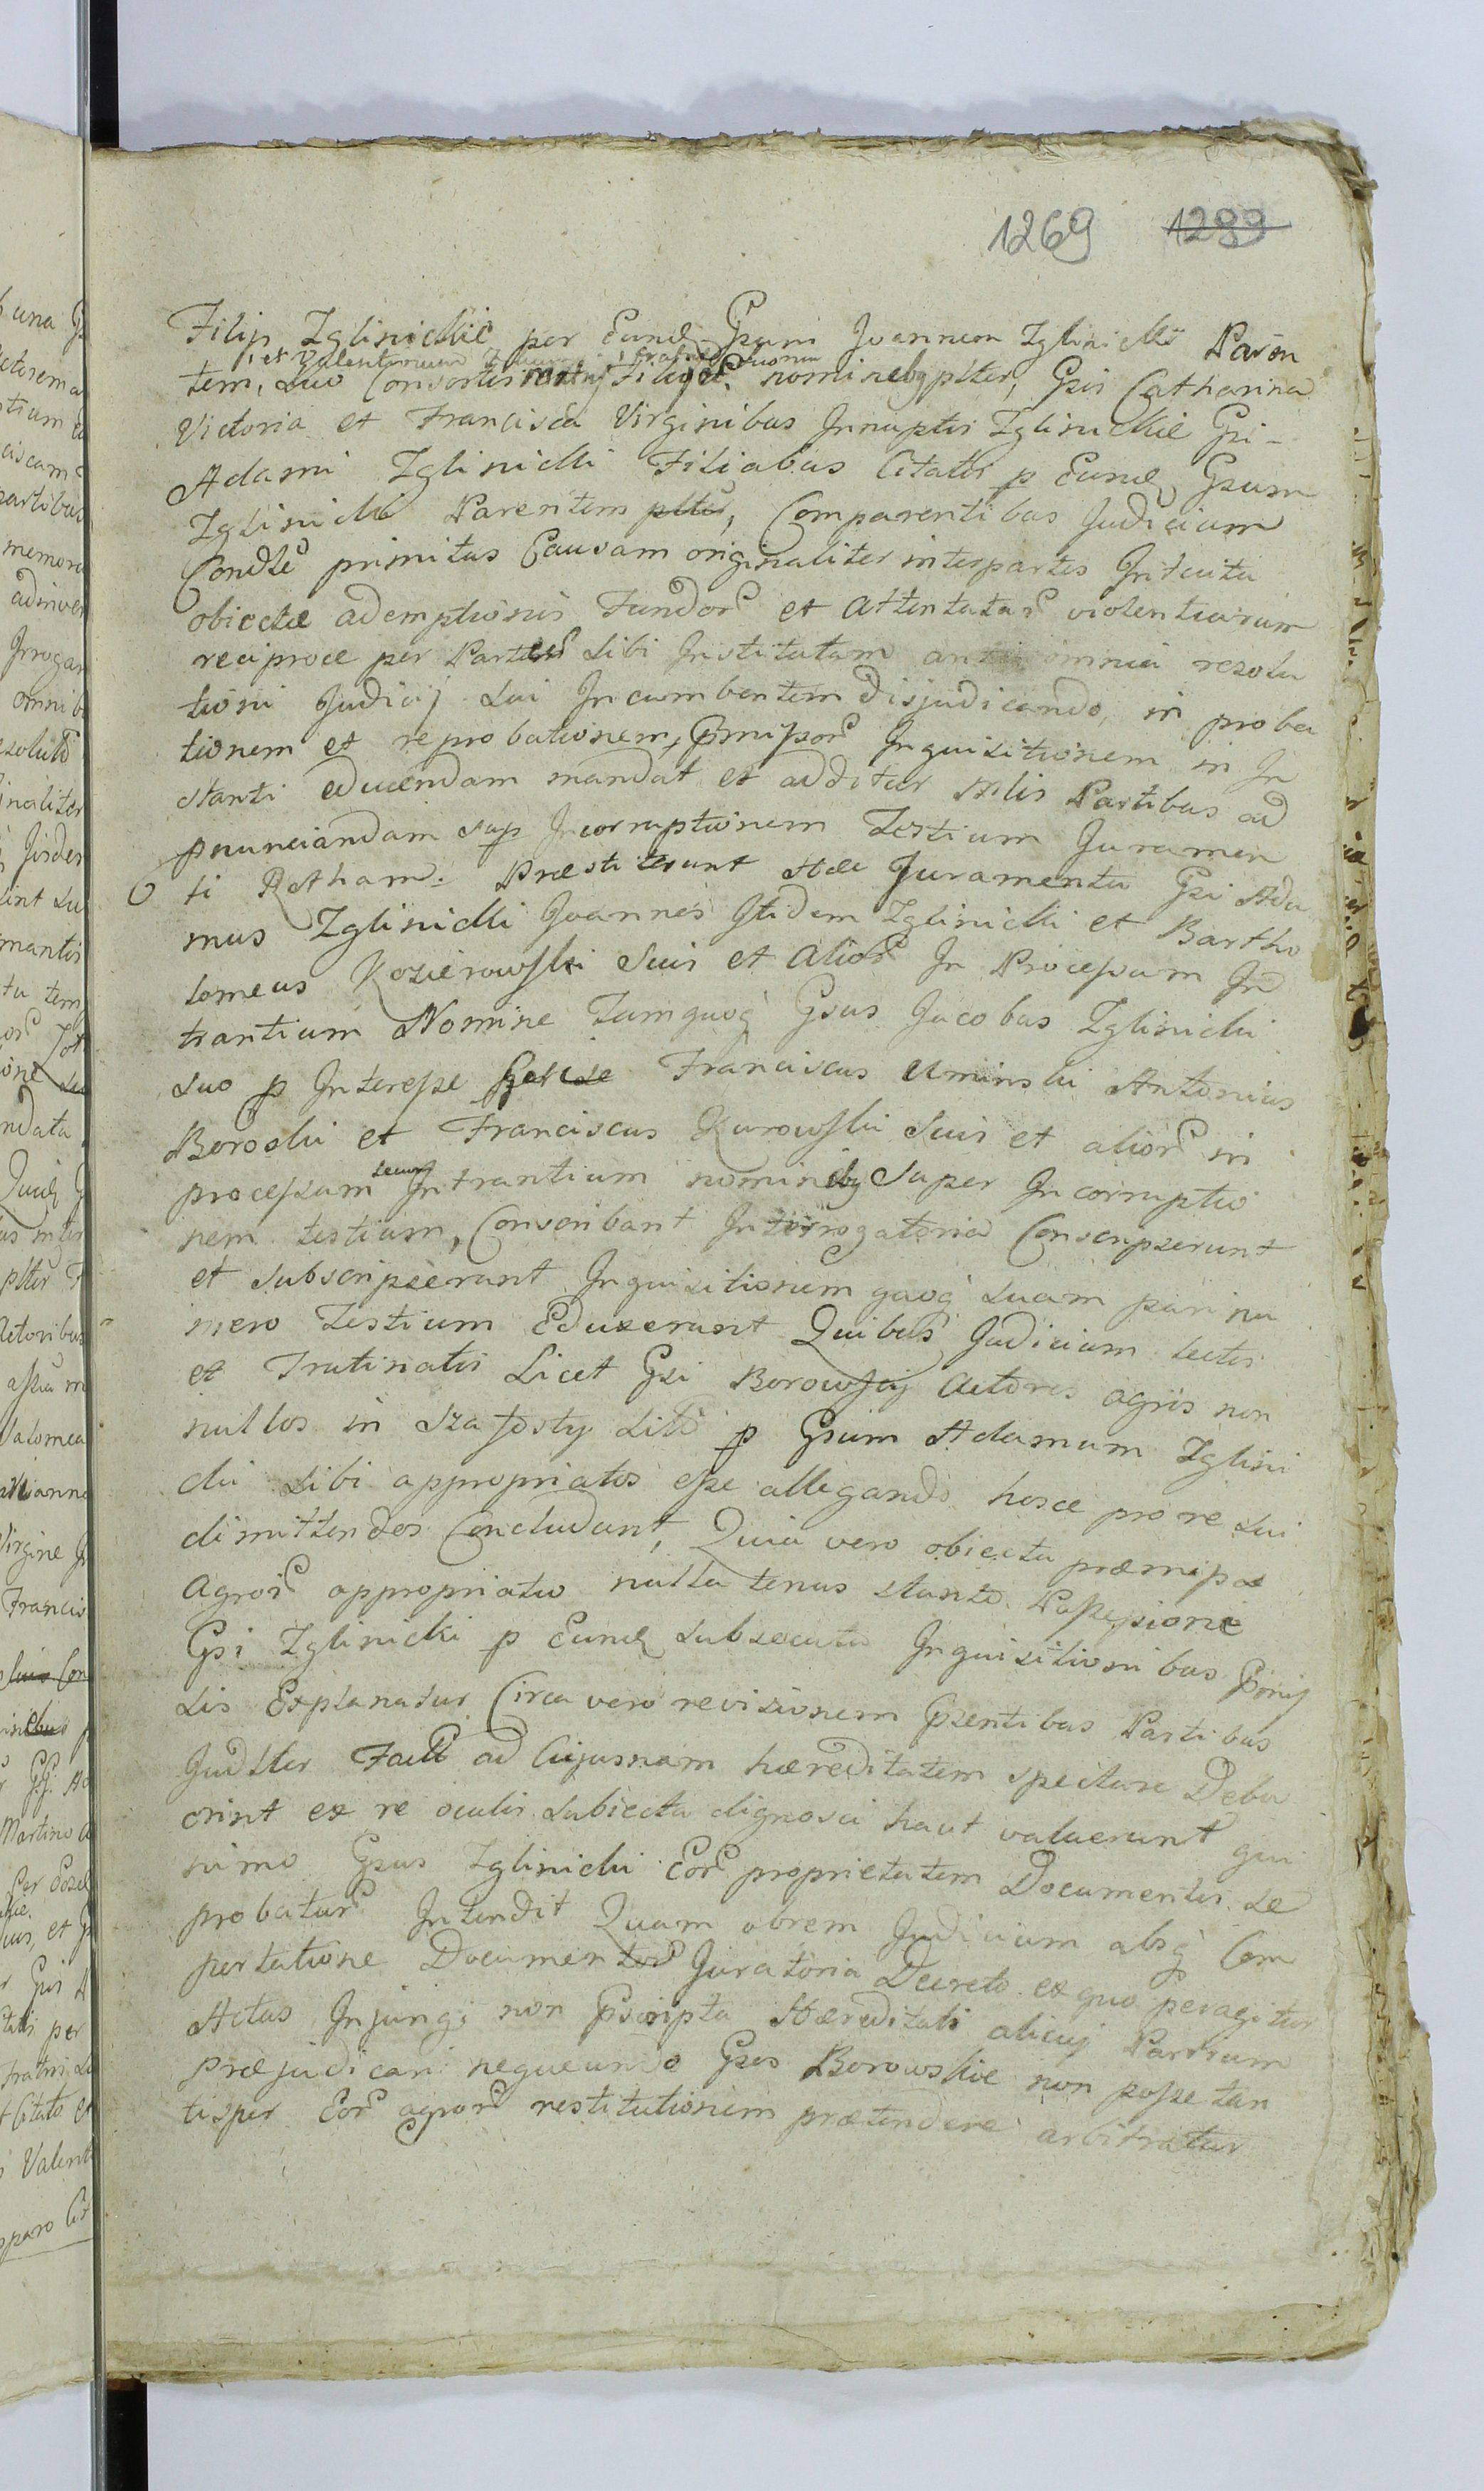 1269 1299
Filip Zglinickie per Eund Gsum Joannem Zglinicki Paren
et Valentinum fratres suorum
tem, suo Consortis nominebq plter, Gsis Catharina
Victoria et Francisca Virginibus Innuptis Zglinickie Gsi
Adami Zglinicki Filiabus Citatis p Eund Gsum
Zglinicki Parentem plter, Comparentibus Judicium
Condle primitus Causam originaliter interpartes Intuitu
obiectæ ademptionis Fundor et Attentatar violentiarum
reciproce per Partes Sibi Institutam ante omnia resolu
tioni Judicij Sui Incumbentem disjudicando, in proba
tionem et reprobationem, Pmissor Inquisitionem in In
stanti educendam mandat et additur Illis Partibus ad
pnunciandam sup Incorruptionem Testium Juramen
ti Rotham. Præstiterunt Hæc Juramenta Gsi Ada
mus Zglinicki Joannes Itidem Zglinicki et Bartho
lomeus Kozierowski Suis et Alior In Processum In
trantium Nomine Tumquoq Gsus Jacobus Zglinicki
suo p Interesse Franciscus Uminski Antonius
Boroski et Franciscus Kurowski Suis et alior in
processum secum Intrantium nominibq Super Incorruptio
nem testium, Conscribant Interrogatoria Conscripserunt
et subscripserunt Inquisitionem quoq suam pari nu
mero Testium Eduxerunt Quibus Judicium lectis
et Trutinatis Licet Gsi Borowscij Actores agris non
nullos in Szafosty Sito p Gsum Adamum Zglini
cki Sibi appropriatos esse allegando hosce pro re sui
dimittendos Concludant, Quia vero obiecta præmissa
Agror appropriatio nulla tenus stante Possessione
Gsi Zglinicki p Eund subsecuta Inquisitionibus Pmis
sis Explanatur Circa vero revisionem Psentibus Partibus
Judtler Fact ad Cujusnam hæreditatem spectare Debu
erint ex re oculis subiecta dignosci haut valuerunt qui
nimo Gsus Zglinicki Eor proprietatem Documentis se
probatur Intendit Quam obrem Judicium absq Com
portatione Documentor Juratoria Decreto ex quo peragitur
Actus Injungi non Pscripta Hæreditati alicuj Partium
Præjudicari nequeundo Gsos Borowskie non posse tan
tisper Eor agror restitutionem prætendere arbitratur